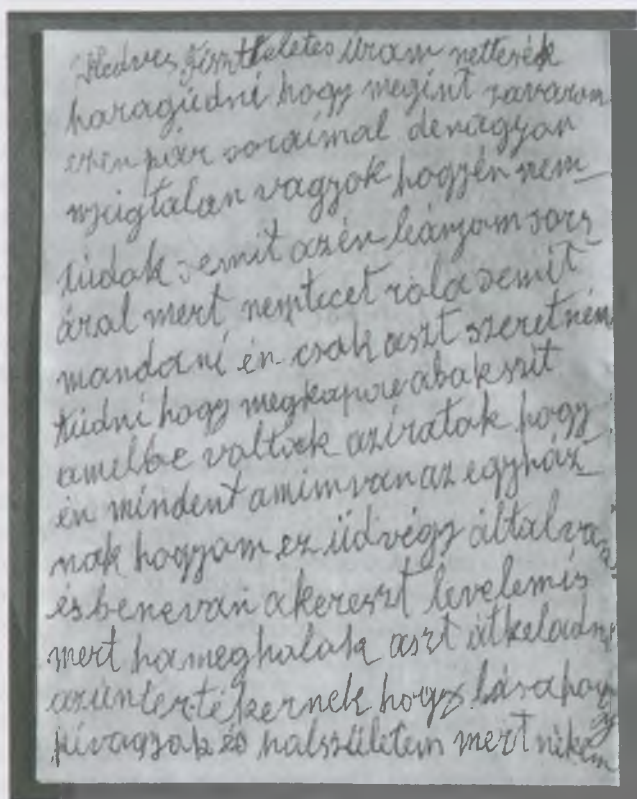 Kedves Tiszteletes úram nettesék
haragúdni hogy megint zavarom
ezen pár soraimal denagyon
nyugtalan vagyok hogyén nem
túdok semit azén leányom sors
áral mert nemticet rola semit
mondani én csak aszt szeretném
túdni hogy megkapta abakszit
amelbe voltak aziratok hogy
én mindent amim van az egyház
nak hogyom ez üdvégy által va
és benevan a kereszt levelemis
mert hameghalok aszt átkeladni
hogy lásahogy
kivagyok és holszületem mert nékem